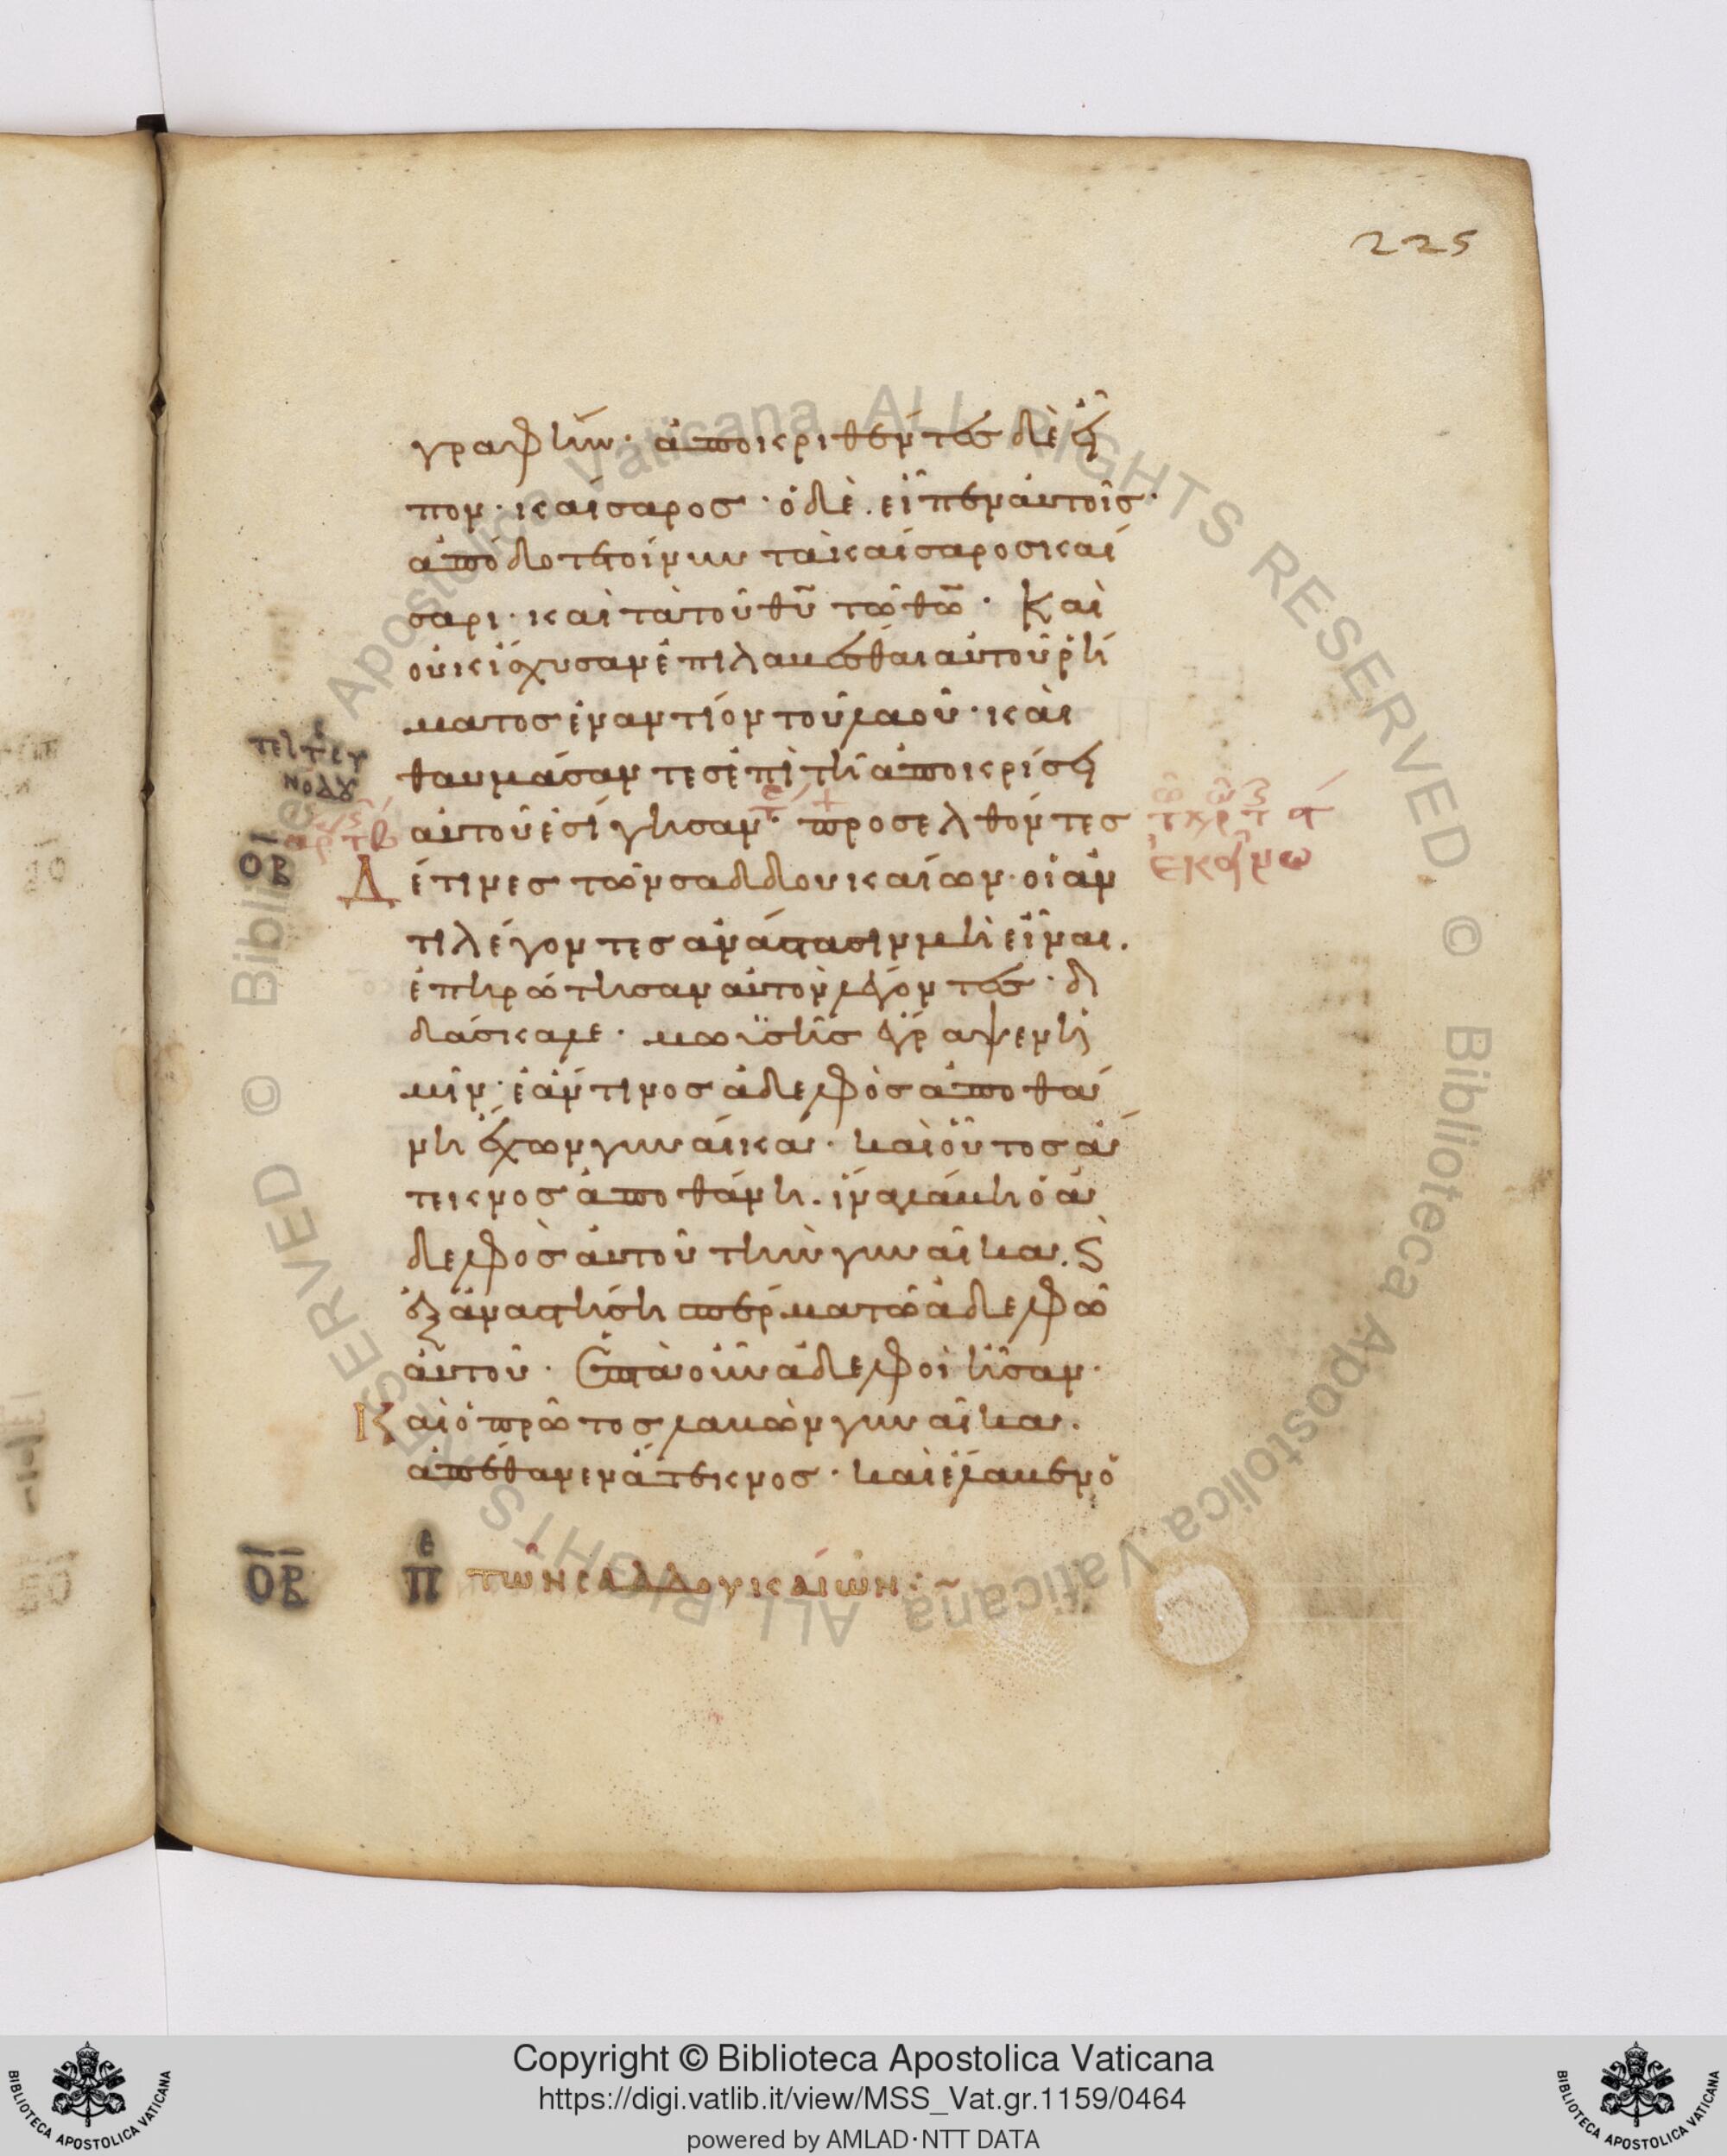 225
γραφήν· ἀποκριθέντες δὲ εἶ
πον· καίσαρος· ὁ δὲ. εἶπεν αὐτοῖς·
ἀπόδοτε τοίνυν τὰ καίσαρος καί
σαρι· καὶ τὰ τοῦ θυ τῶ θω· Καὶ
οὐκ ἴσχυσαν ἐπιλαβέσθαι αὐτοῦ ῥή
ματος ἐναντίον τοῦ λαοῦ· καὶ
θαυμάσαντες ἐπὶ τῆ ἀποκρίσει
αὐτοῦ ἐσίγησαν· προσελθόντες
ΟΒ Δ έ τινες τῶν σαδδουκαίων· οἱ ἀν
τιλέγοντες ἀνάστασιν μὴ εἶναι.
ἐπηρώτησαν αὐτὸν λέγοντες· δι
δάσκαλε· μωϋσῆς ἔγραψεν ἡ
μῖν· ἐάν τινος ἀδελφὸς ἀποθά
νη ἔχων γυναίκα· καὶ οὗτος ἄ
τεκνος ἀποθάνη. ἵνα λάβη ὁ ἀ
δελφὸς αὐτοῦ τὴν γυναῖκα. ϗ
ἐξαναστήση σπέρμα τῶ ἀδελφῶ
αὐτοῦ· Ἑπτὰ οὖν ἀδελφοὶ ἦσαν·
Καὶ ὁ πρῶτος λαβὼν γυναῖκα.
ἀπέθανεν ἄτεκνος· καὶ ἔλαβεν ὁ
ΟΒ πε τῶν σαδδουκαίων:~
Copyright © Biblioteca Apostolica Vaticana
https://digi.vatlib.it/view/MSS_Vat.gr.1159/0464
powered by AMLAD·NTT DATA